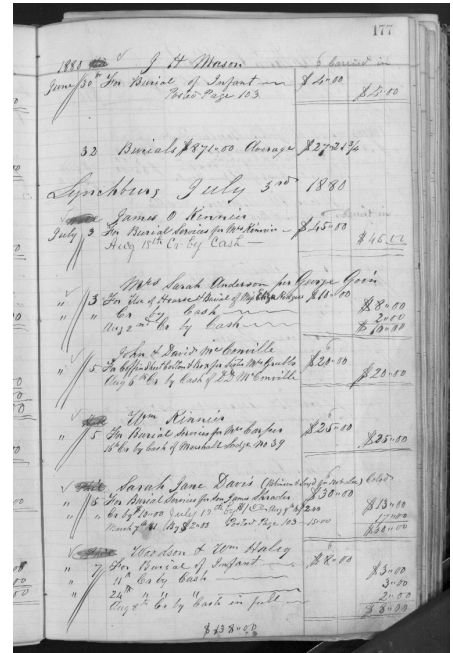 177
1880 J H Mason
June 30th For Burial of Infant $4.00
Posted Page 103 $4.00
32 Burials $871.00 Average $27.21 3/4
Lynchburg July 3rd 1880
James O Kinnier
July 3 For Burial Services for Mrs Kinnier $45.00
Aug 18th Cr By Cash $45.00
Mrs Sarah Anderson per George Goin
" 3 For Hire of Hearse & Burial of $10.00
" Cr by Cash $8.00
Aug 2nd Cr by Cash 2.00
$10.00
John & David McConville
" 5 For Coffin $20.00
Aug 6th Cr by Cash of D McConville $20.00
Wm Kinnier
" 5 For Burial Services for Mr $25.00
Cr by Cash of Marshall Lodge No 39 $25.00
Sarah Jane Davis Cold
" 5 For Burial Services for Son James $30.00
" Cr by 10.00 July $13.00
March 7th 81 By $2.00 Posted Page 103 15.00 17.00
$30.00
Woodson & Wm Haley
" 7 For Burial of Infant $8.00
" 11th Cr by Cash $3.00
" 24th " " " 3.00
Aug 8th Cr by Cash in full 2.00
$8.00
$138.00